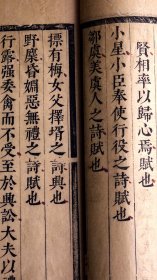 賢相率以歸心焉賦也
小星小臣奉使行役之詩賦也
騶虞美虞人之詩賦也
摽有梅女父擇壻之詩興也
野麕昏媚惡無禮之詩賦也
行露强委禽而不受至於興訟大夫以